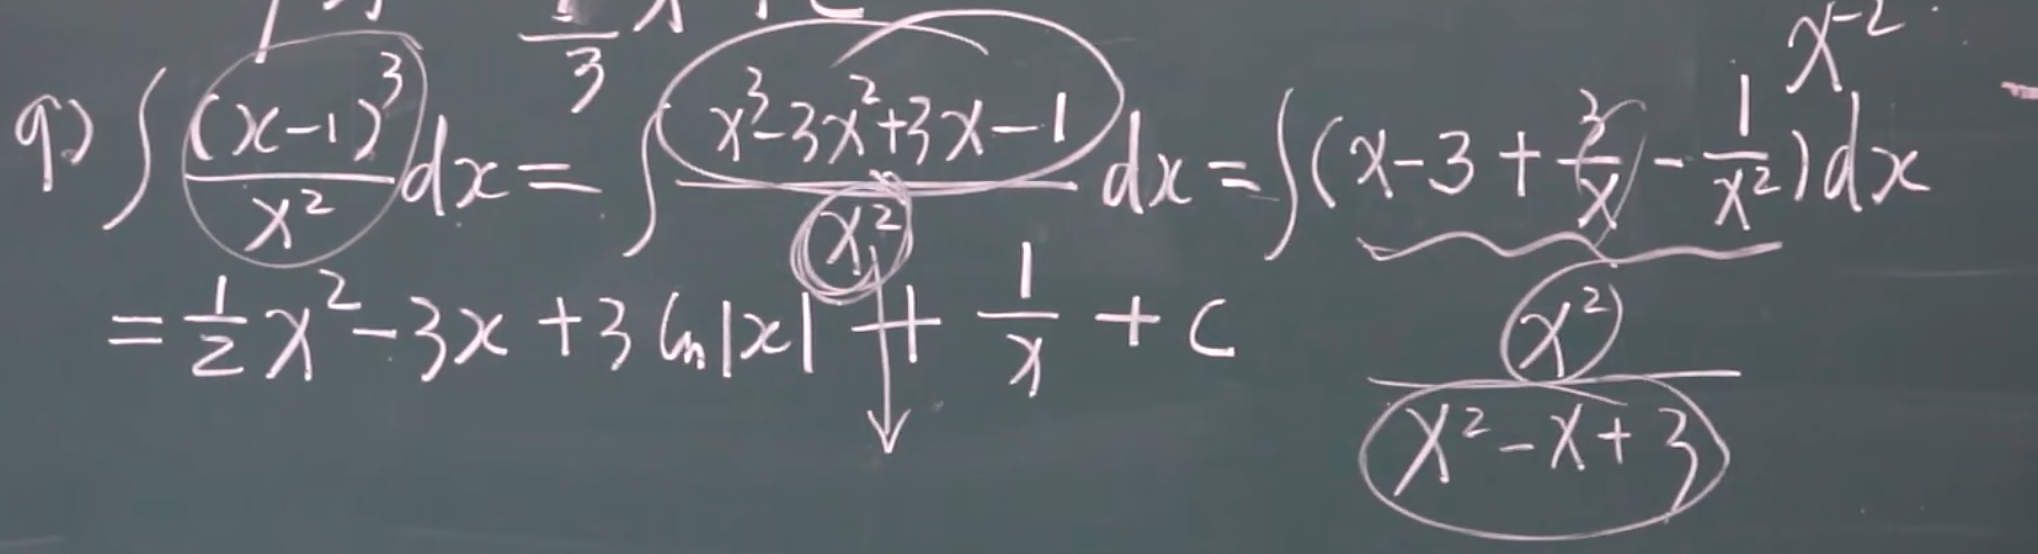 3
x^-2
9) ∫ (x-1)^3/x^2 dx = ∫ (x^3-3x^2+3x-1)/x^2 dx = ∫(x-3+3/x-1/x^2)dx
= 1/2 x^2-3x+3 ln|x| + 1/x + C
x^2/(x^2-x+3)